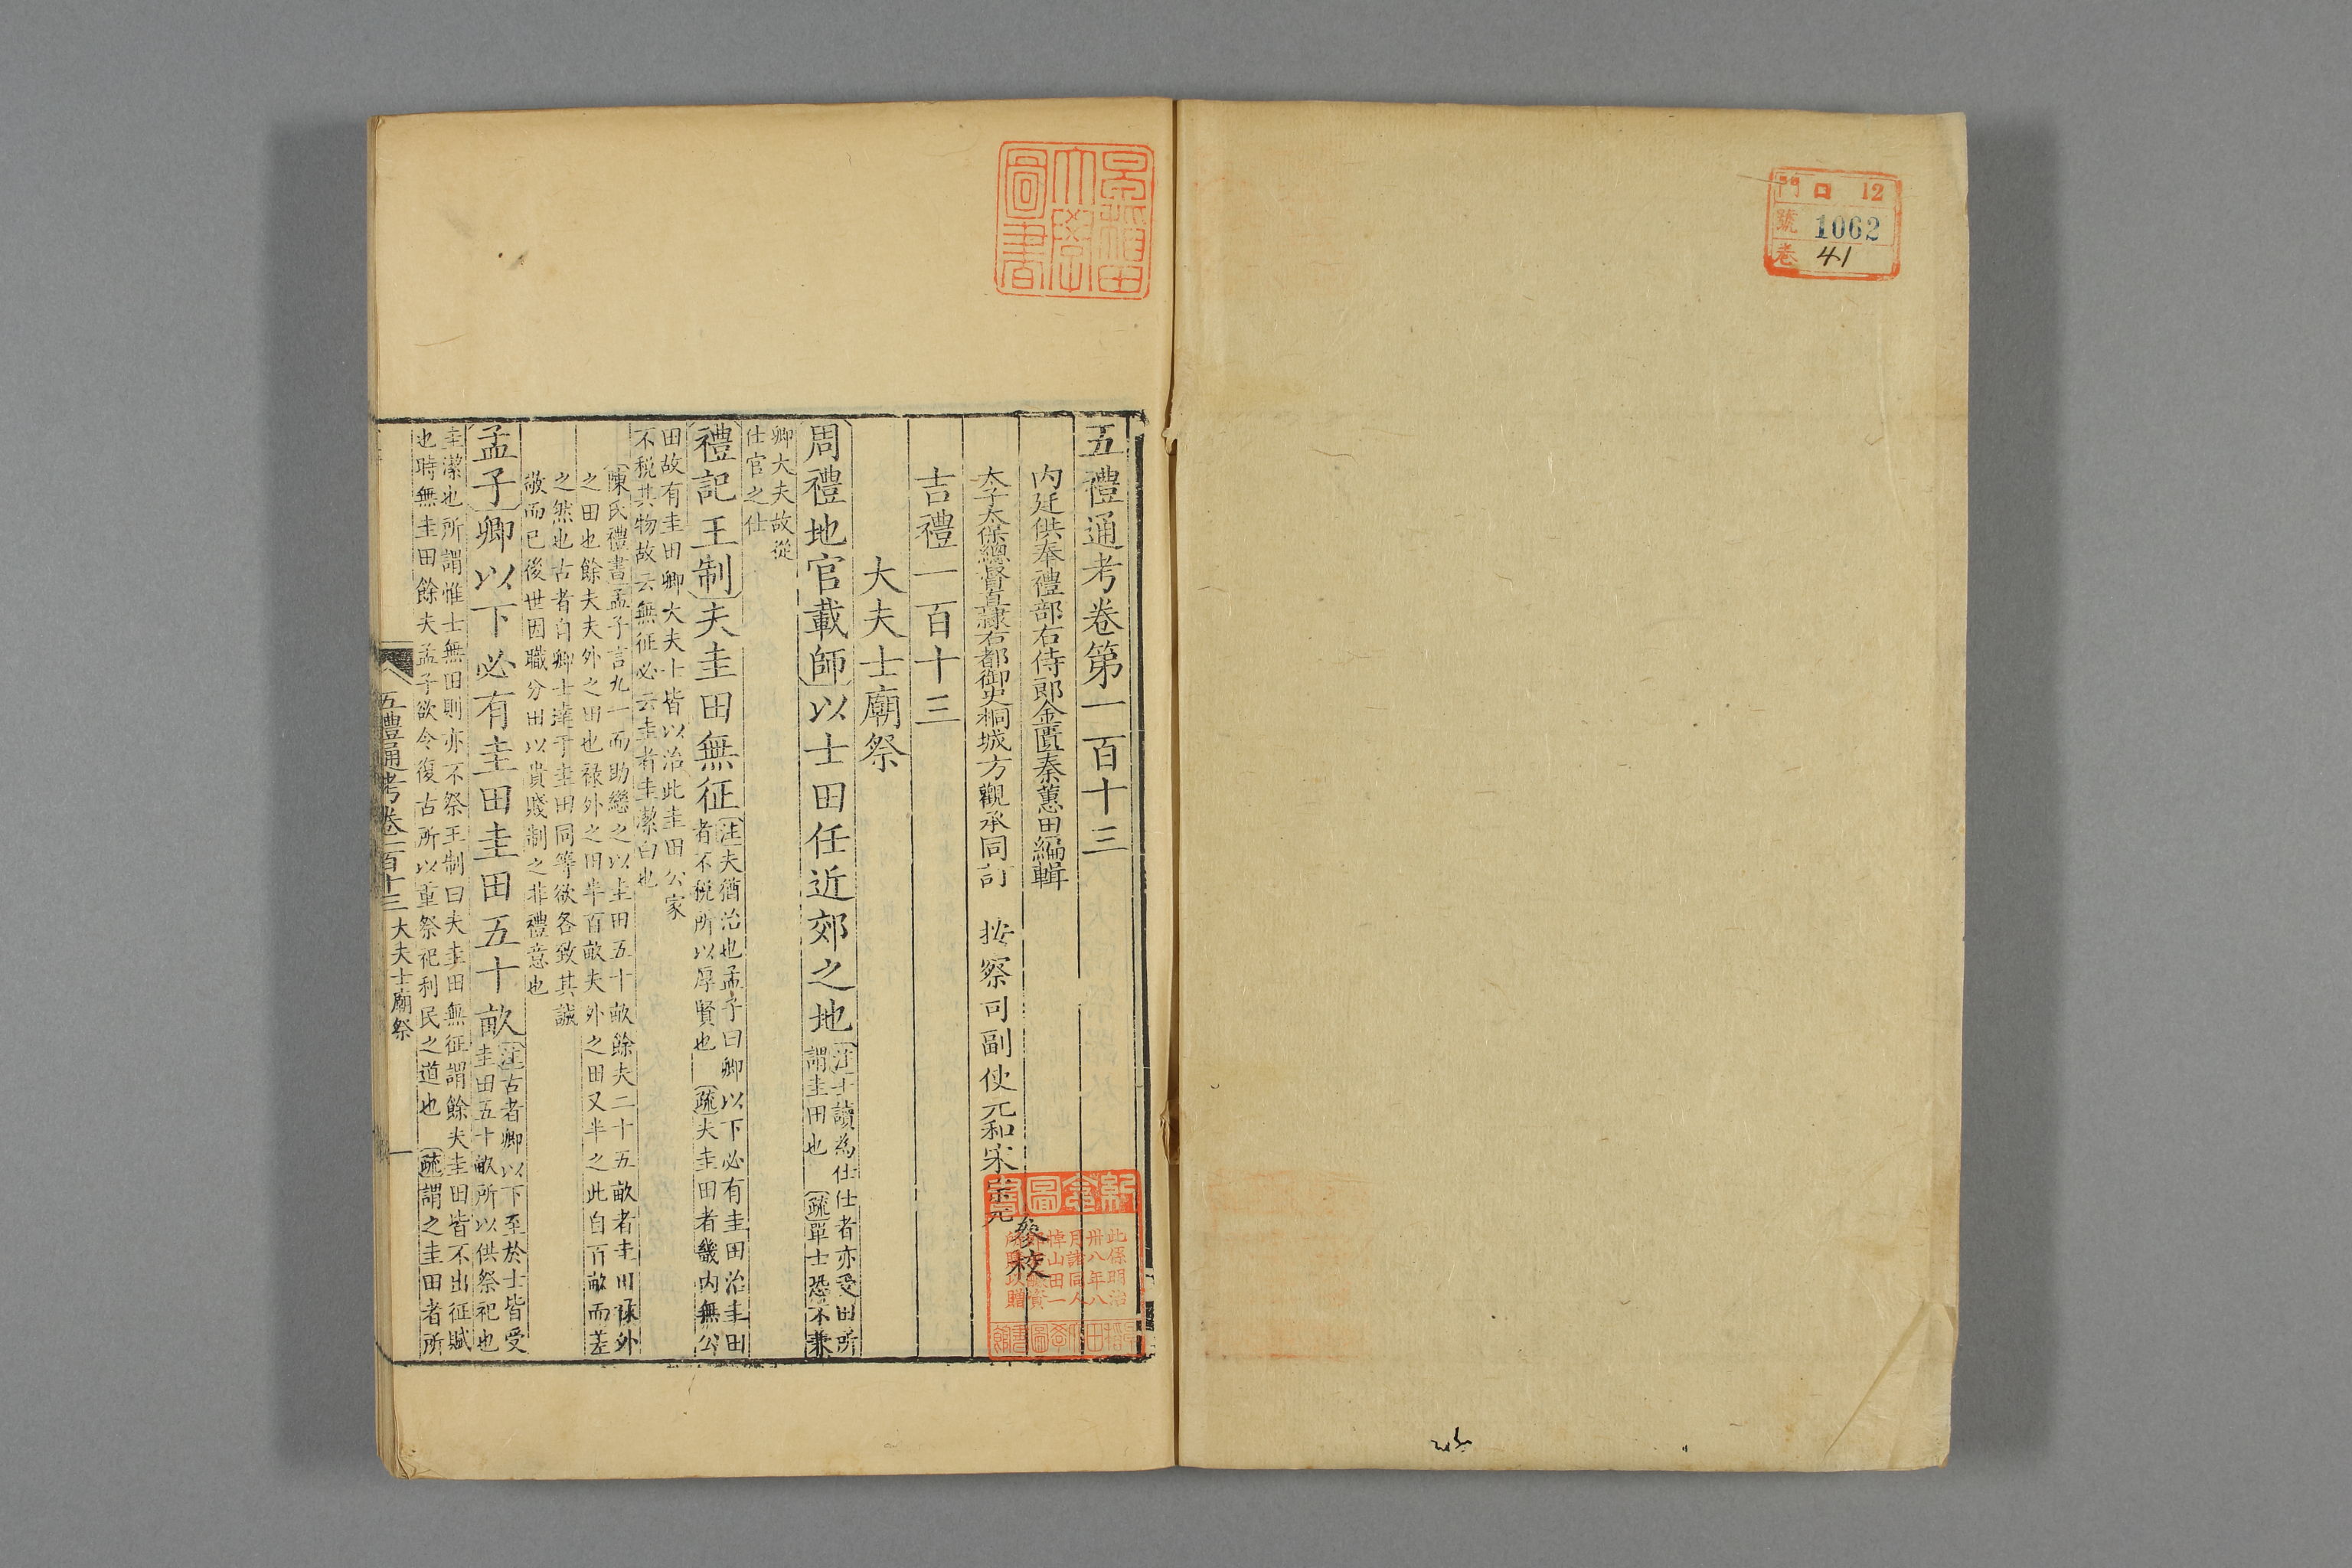 門 口 12
號 1062
卷 41
早稻田大學圖書
五禮通考卷第一百十三
內廷供奉禮部右侍郎金匱秦蕙田編輯
太子太保總督直隸右都御史桐城方觀承同訂 按察司副使元和宋宗元
參校
吉禮一百十三
大夫士廟祭
周禮地官載師以士田任近郊之地
注士讀為仕仕者亦受田所
謂圭田也 疏單士恐不兼
卿大夫故從
仕官之仕
禮記王制夫圭田無征
注夫猶治也孟子曰卿以下必有圭田治圭田
者不稅所以厚賢也 疏夫圭田者畿內無公
田故有圭田卿大夫士皆以治此圭田公家
不稅其物故云無征必云圭者圭潔白也
陳氏禮書孟子言九一而助繼之以圭田五十畝餘夫二十五畝者圭田祿外
之田也餘夫夫外之田也祿外之田半百畝夫外之田又半之此自百畝而差
之然也古者自卿士達于圭田同等欲各致其誠
敬而已後世因職分田以貴賤制之非禮意也
孟子卿以下必有圭田圭田五十畝
注古者卿以下至於士皆受
圭田五十畝所以供祭祀也
圭潔也所謂惟士無田則亦不祭王制曰夫圭田無征謂餘夫圭田皆不出征賦
也時無圭田餘夫孟子欲令復古所以重祭祀利民之道也 疏謂之圭田者所
五禮通考卷一百十三 大夫士廟祭 一
此係明治
卅八年八
月諸同人